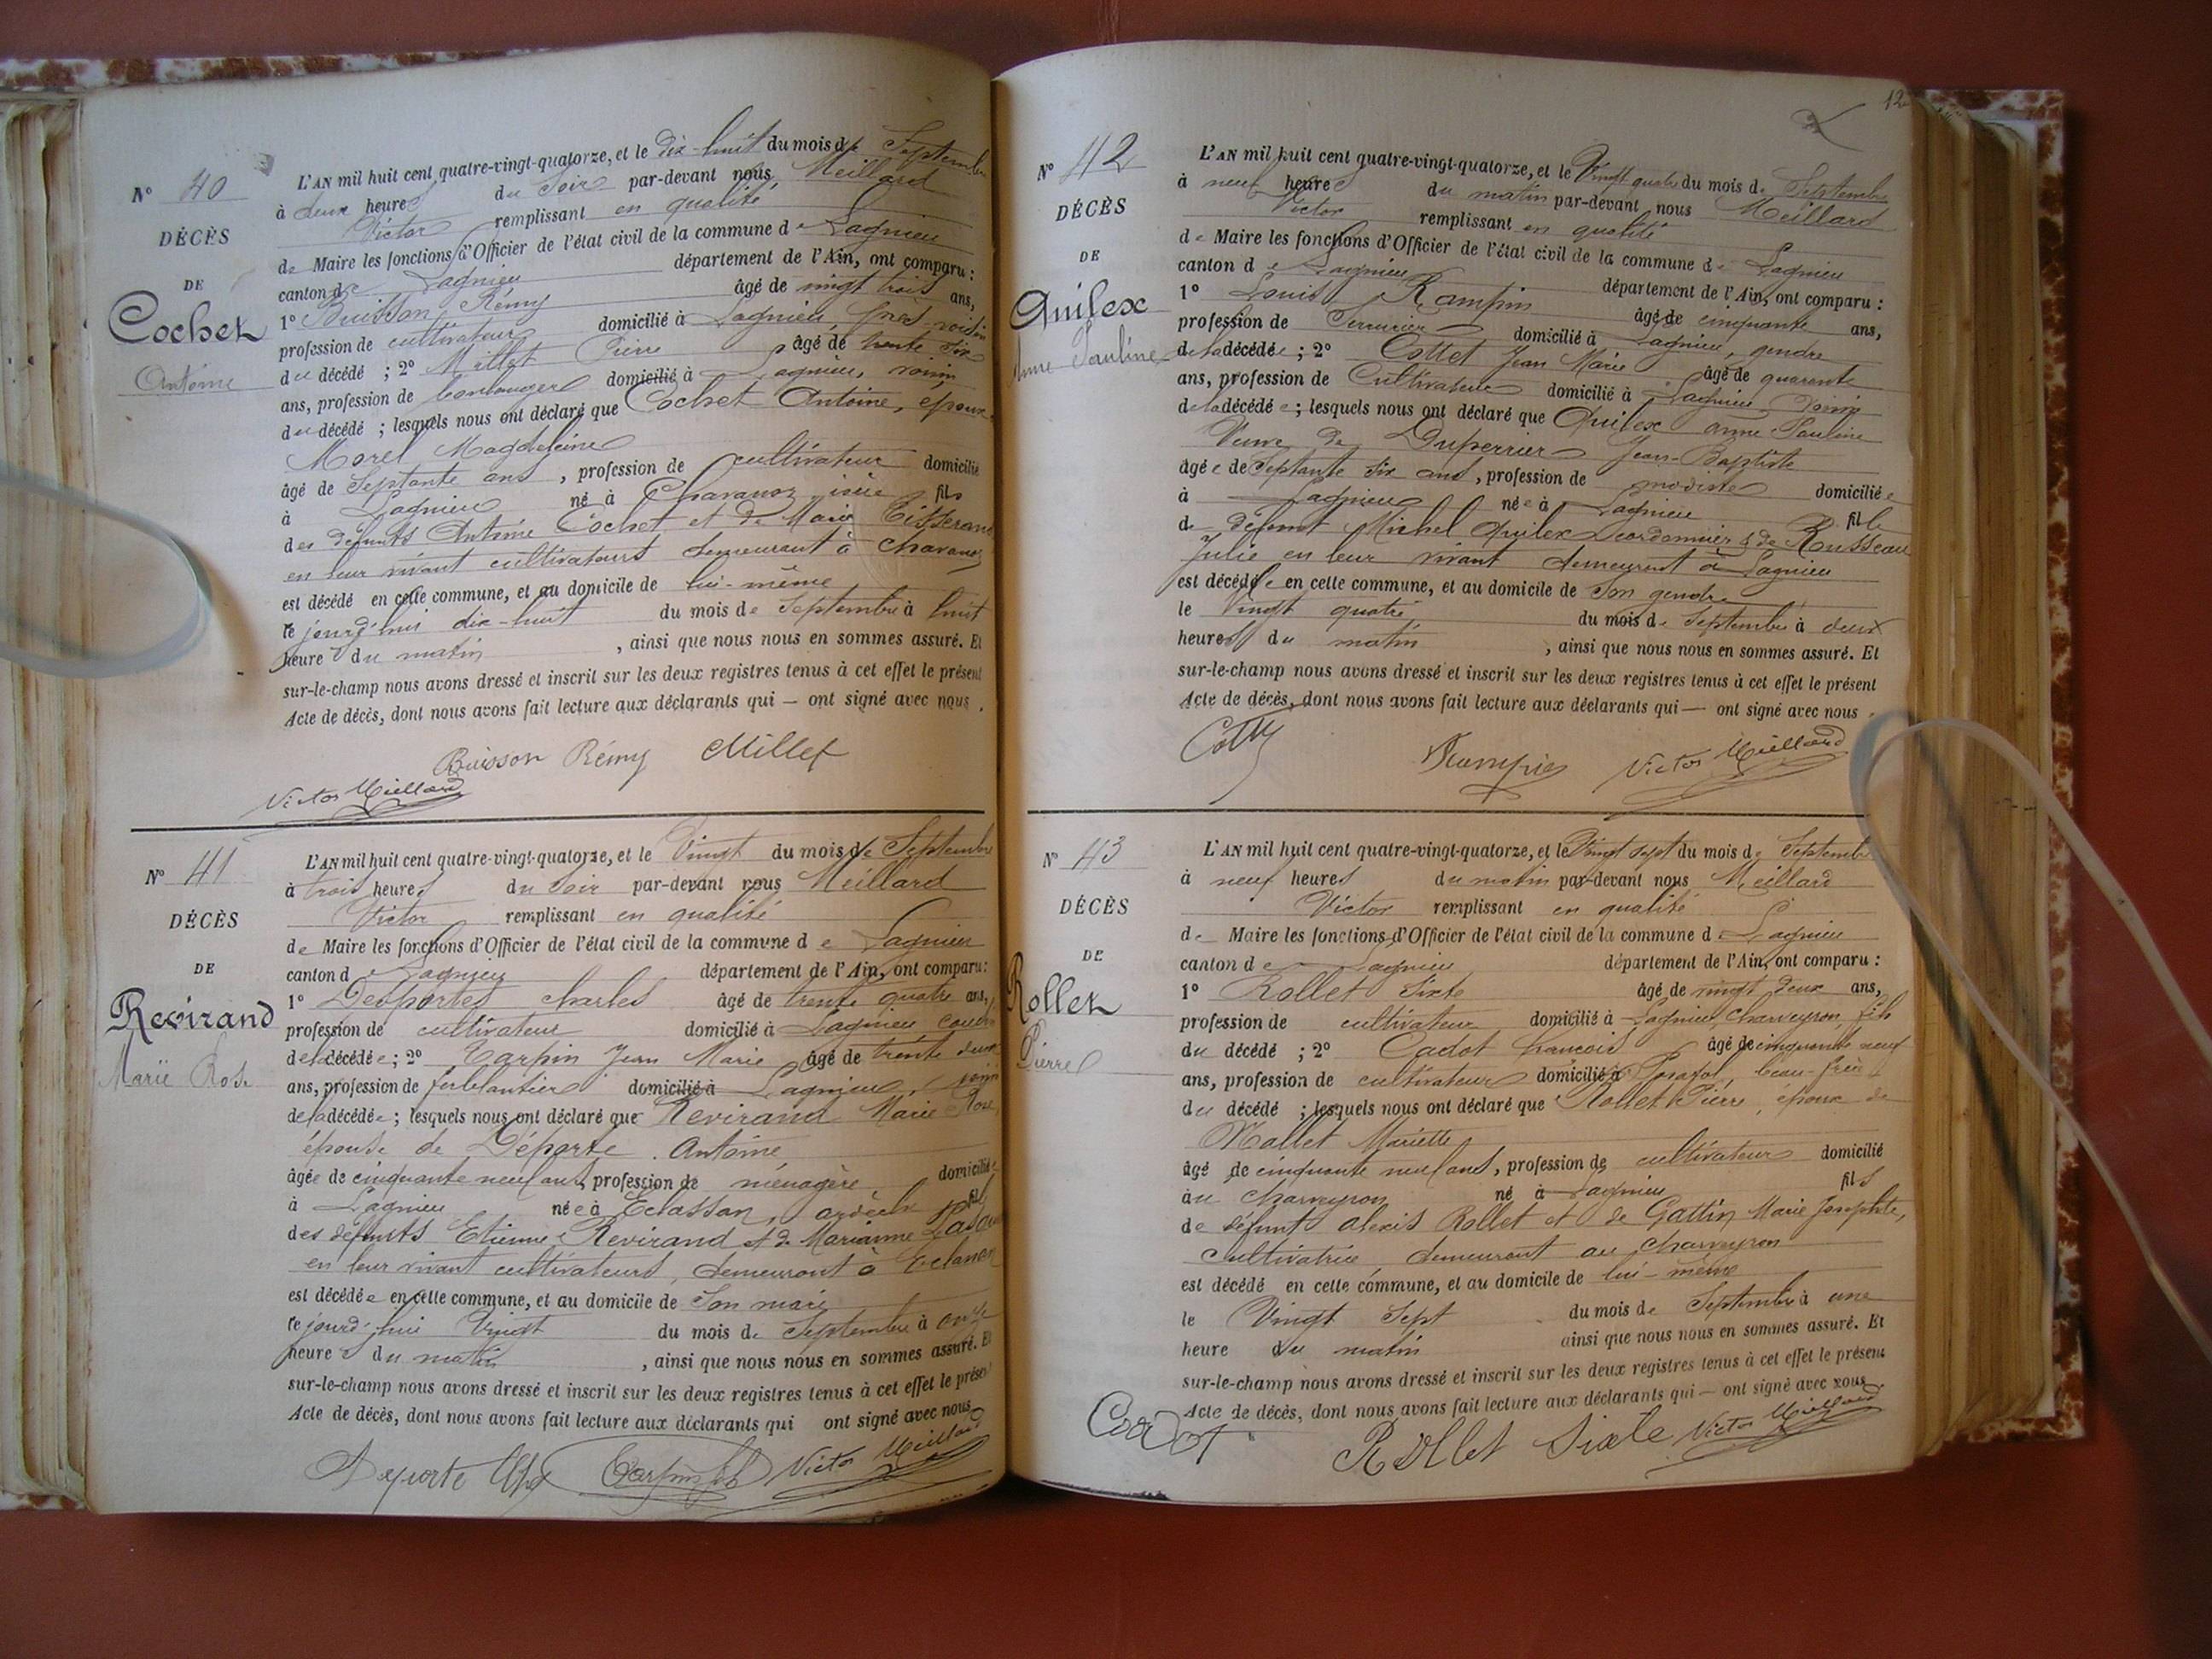 N° 40
DÉCÈS
DE
Cochet
Antoine
L'AN mil huit cent quatre-vingt-quatorze, et le dix-huit du mois de Septembre
à deux heures du soir par-devant nous Meillard
Victor remplissant en qualité
de Maire les fonctions d'Officier de l'état civil de la commune de Lagnieu
canton de Lagnieu département de l'Ain, ont comparu :
1° Buisson Rémy âgé de vingt trois ans,
profession de cultivateur domicilié à Lagnieu, près voisin
du décédé ; 2° Millet Pierre âgé de trente six
ans, profession de boulanger domicilié à Lagnieu, voisin
du décédé ; lesquels nous ont déclaré que Cochet Antoine, époux
Morel Magdeleine
âgé de Septante ans , profession de cultivateur domicilié
à Lagnieu né à Chavanoz isère fils
des défunts Antoine Cochet et de Marie Tisserand
en leur vivant cultivateurs demeurant à Chavanoz
est décédé en cette commune, et au domicile de lui-même
le jourd'hui dix-huit du mois de Septembre à huit
heures du matin , ainsi que nous nous en sommes assuré. Et
sur-le-champ nous avons dressé et inscrit sur les deux registres tenus à cet effet le présent
Acte de décès, dont nous avons fait lecture aux déclarants qui — ont signé avec nous.
Buisson Rémy Millet
Victor Meillard
N° 41
DÉCÈS
DE
Revirand
Marie Rose
L'AN mil huit cent quatre-vingt-quatorze, et le Vingt du mois de Septembre
à trois heures du soir par-devant nous Meillard
Victor remplissant en qualité
de Maire les fonctions d'Officier de l'état civil de la commune de Lagnieu
canton de Lagnieu département de l'Ain, ont comparu :
1° Desportes charles âgé de trente quatre ans,
profession de cultivateur domicilié à Lagnieu cousin
de la décédée ; 2° Carpin Jean Marie âgé de trente deux
ans, profession de ferblantier domicilié à Lagnieu, voisin
de la décédée ; lesquels nous ont déclaré que Revirand Marie Rose,
épouse de Déporte Antoine
âgée de cinquante neuf ans, profession de ménagère, domiciliée
à Lagnieu née à Eclassan, ardèche fille
des défunts Etienne Revirand et de Marianne
en leur vivant cultivateurs, demeurant à Eclassan
est décédée en cette commune, et au domicile de Son mari
le jourd'hui Vingt du mois de Septembre à onze
heures du matin , ainsi que nous nous en sommes assuré. Et
sur-le-champ nous avons dressé et inscrit sur les deux registres tenus à cet effet le présent
Acte de décès, dont nous avons fait lecture aux déclarants qui ont signé avec nous
Deporte Carpin Victor Meillard
12
N° 42
DÉCÈS
DE
Quilex
Anne Pauline
L'AN mil huit cent quatre-vingt-quatorze, et le Vingt quatre du mois de Septembre
à neuf heures du matin par-devant nous Meillard
Victor remplissant en qualité
de Maire les fonctions d'Officier de l'état civil de la commune de Lagnieu
canton de Lagnieu département de l'Ain, ont comparu :
1° Louis Rampin âgé de cinquante ans,
profession de Serrurier domicilié à Lagnieu, gendre
de la décédée ; 2° Cottet Jean Marie âgé de quarente
ans, profession de Cultivateur domicilié à Lagnieu Voisin
de la décédée ; lesquels nous ont déclaré que Quilex anne Pauline
Veuve de Duperrier Jean-Baptiste
âgée de Septante six ans, profession de modiste domiciliée
à Lagnieu née à Lagnieu fille
de défunt Michel Quilex Cordonnier & de Rousseau
Julie en leur vivant demeurant à Lagnieu
est décédée en cette commune, et au domicile de Son gendre
le Vingt quatre du mois de Septembre à deux
heures du matin , ainsi que nous nous en sommes assuré. Et
sur-le-champ nous avons dressé et inscrit sur les deux registres tenus à cet effet le présent
Acte de décès, dont nous avons fait lecture aux déclarants qui — ont signé avec nous.
Rampin Victor Meillard
N° 43
DÉCÈS
DE
Rollet
Pierre
L'AN mil huit cent quatre-vingt-quatorze, et le Vingt sept du mois de Septembre
à neuf heures du matin par-devant nous Meillard
Victor remplissant en qualité
de Maire les fonctions d'Officier de l'état civil de la commune de Lagnieu
canton de Lagnieu département de l'Ain, ont comparu :
1° Rollet Sixte âgé de vingt deux ans,
profession de cultivateur domicilié à Lagnieu, Charveyron, fils
du décédé ; 2° Cadot francois âgé de cinquante neuf
ans, profession de cultivateur domicilié à beau-frère
du décédé ; lesquels nous ont déclaré que Rollet Pierre, époux de
Mallet Mariette
âgé de cinquante neuf ans, profession de cultivateur domicilié
au Charveyron né à Lagnieu fils
de défunt alexis Rollet et de Gattin Marie Josephte,
Cultivatrice demeurant au Charveyron
est décédé en cette commune, et au domicile de lui-même
le Vingt Sept du mois de Septembre à une
heure du matin ainsi que nous nous en sommes assuré. Et
sur-le-champ nous avons dressé et inscrit sur les deux registres tenus à cet effet le présent
Acte de décès, dont nous avons fait lecture aux déclarants qui — ont signé avec nous
Cadot Rollet Sixte Victor Meillard